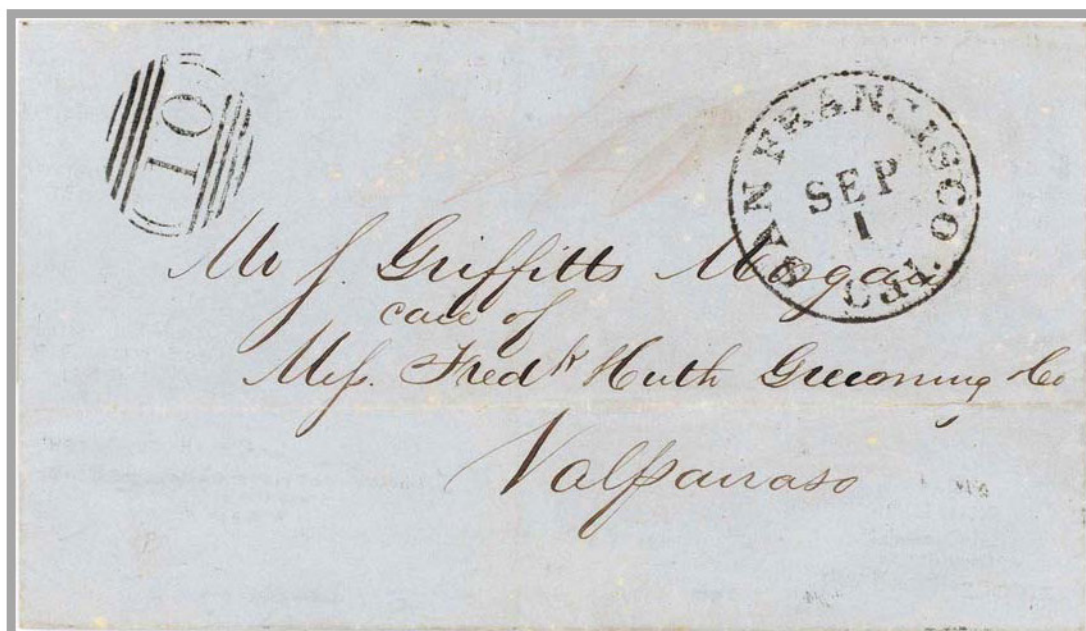 10
SAN FRANCISCO
SEP
1
Cal.
Mr J. Griffitts Morgan
care of
Mess. Fredk Huth Greeoning Co
Valparaiso